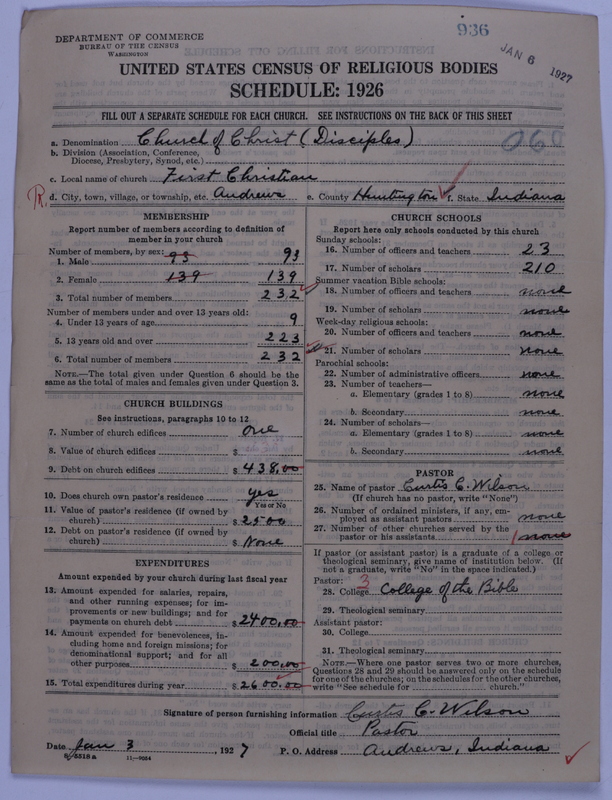 936
JAN 6 1927
DEPARTMENT OF COMMERCE
BUREAU OF THE CENSUS
WASHINGTON
UNITED STATES CENSUS OF RELIGIOUS BODIES
SCHEDULE: 1926
FILL OUT A SEPARATE SCHEDULE FOR EACH CHURCH. SEE INSTRUCTIONS ON THE BACK OF THIS SHEET
060
a. Denomination Church of Christ (Disciples)
b. Division (Association, Conference, Diocese, Presbytery, Synod, etc.)
c. Local name of church First Christian
R. d. City, town, village, or township, etc. Andrews e. County Huntington f. State Indiana
MEMBERSHIP
Report number of members according to definition of
member in your church
Number of members, by sex:
1. Male 93 93
2. Female 139 139
3. Total number of members 232
Number of members under and over 13 years old:
4. Under 13 years of age 9
5. 13 years old and over 223
6. Total number of members 232
NOTE.—The total given under Question 6 should be the
same as the total of males and females given under Question 3.
CHURCH BUILDINGS
See instructions, paragraphs 10 to 12
7. Number of church edifices one
8. Value of church edifices $
9. Debt on church edifices $ 438,00
10. Does church own pastor's residence yes
Yes or No
11. Value of pastor's residence (if owned by
church) $ 2500
12. Debt on pastor's residence (if owned by
church) $ None
EXPENDITURES
Amount expended by your church during last fiscal year
13. Amount expended for salaries, repairs,
and other running expenses; for im-
provements or new buildings; and for
payments on church debt $ 2400,00
14. Amount expended for benevolences, in-
cluding home and foreign missions; for
denominational support; and for all
other purposes $ 200,00
15. Total expenditures during year $ 2600,00
CHURCH SCHOOLS
Report here only schools conducted by this church
Sunday schools:
16. Number of officers and teachers 23
17. Number of scholars 210
Summer vacation Bible schools:
18. Number of officers and teachers none
19. Number of scholars none
Week-day religious schools:
20. Number of officers and teachers none
21. Number of scholars none
Parochial schools:
22. Number of administrative officers none
23. Number of teachers—
a. Elementary (grades 1 to 8) none
b. Secondary none
24. Number of scholars—
a. Elementary (grades 1 to 8) none
b. Secondary none
PASTOR
25. Name of pastor Curtis C. Wilson
(If church has no pastor, write "None")
26. Number of ordained ministers, if any, em-
ployed as assistant pastors none
27. Number of other churches served by the
pastor or his assistants none
If pastor (or assistant pastor) is a graduate of a college or
theological seminary, give name of institution below. (If
not a graduate, write "No" in the space indicated.)
Pastor: 3
28. College College of the Bible
29. Theological seminary
Assistant pastor:
30. College
31. Theological seminary
NOTE.—Where one pastor serves two or more churches,
Questions 28 and 29 should be answered only on the schedule
for one of the churches; on the schedules for the other churches,
write "See schedule for church."
Signature of person furnishing information Curtis C. Wilson
Official title Pastor
Date Jan 3, 1927 P. O. Address Andrews, Indiana
8-5518 a 11—9034